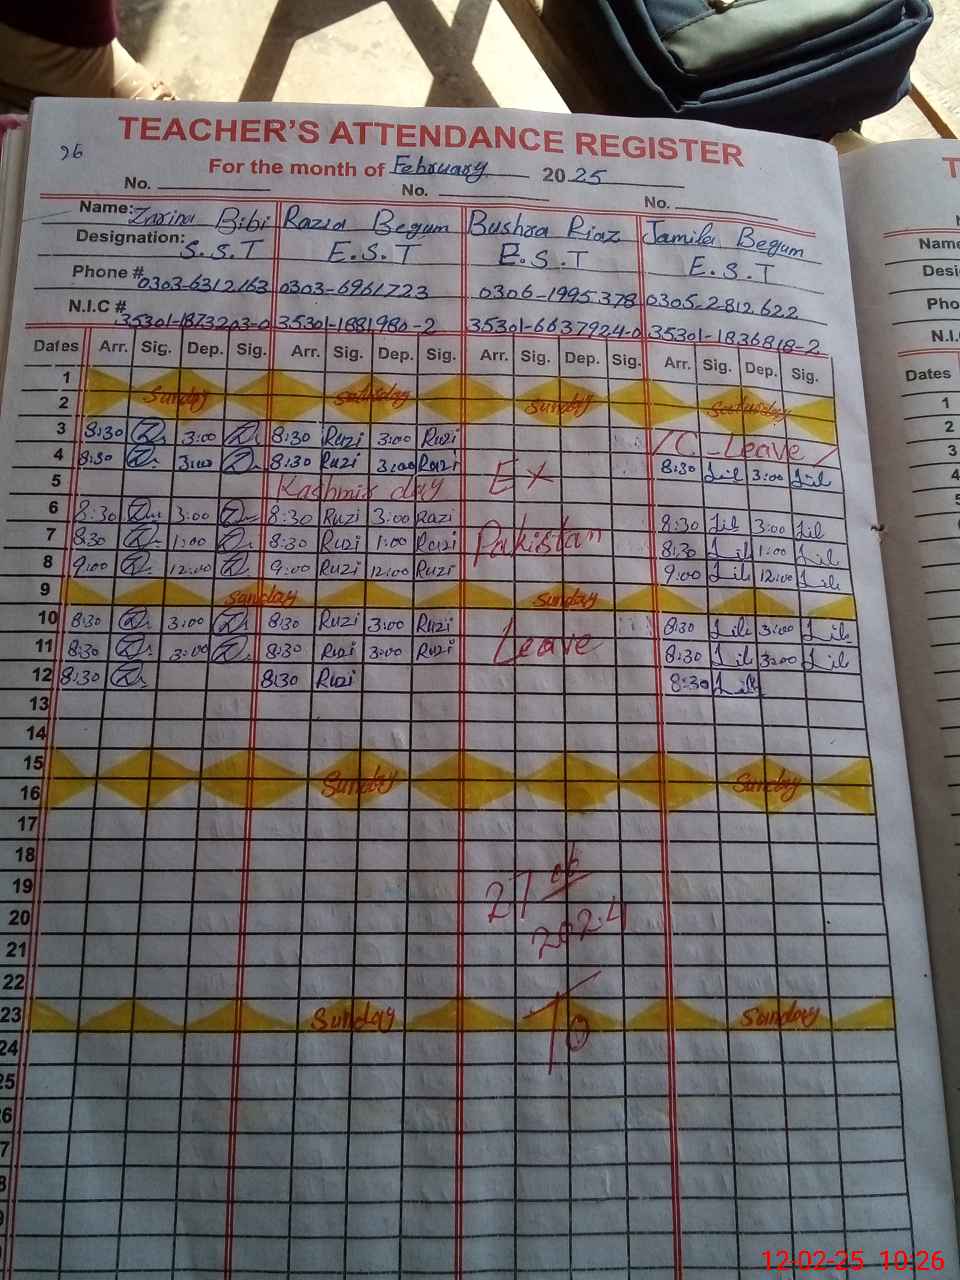 TEACHER'S ATTENDANCE REGISTER
26
For the month of February 2025
No. No. No.
Name: Zarina Bibi Razia Begum Bushra Riaz Jamila Begum
Designation: S.S.T E.S.T E.S.T E.S.T
Phone # 0303-6312163 0303-6961723 0306-1995378 0305-2812622
N.I.C # 35301-1873203-0 35301-1881980-2 35301-6637924-0 35301-1836818-2
Dates Arr. Sig. Dep. Sig. Arr. Sig. Dep. Sig. Arr. Sig. Dep. Sig. Arr. Sig. Dep. Sig.
1
2 Sunday Sunday
3 8:30 3:00 8:30 Ruzi 3:00 Ruzi C-Leave
4 8:30 3:00 8:30 Ruzi 3:00 Ruzi 8:30 3:00
5 Kashmir day Ex
6 8:30 3:00 8:30 Ruzi 3:00 Ruzi 8:30 3:00
7 8:30 1:00 8:30 Ruzi 1:00 Ruzi Pakistan 8:30 1:00
8 9:00 12:00 9:00 Ruzi 12:00 Ruzi 9:00 12:00
9 Sunday Sunday
10 8:30 3:00 8:30 Ruzi 3:00 Ruzi 8:30 3:00
11 8:30 3:00 8:30 Ruzi 3:00 Ruzi Leave 8:30 3:00
12 8:30 8:30 Ruzi 8:30
13
14
15
16 Sunday Sunday
17
18
19 27
20 2024
21
22
23 Sunday To Sunday
24
25
T
Name
Desi
Pho
N.I.
Dates
1
2
3
4
5
6
7
8
9
10
11
12
12-02-25 10:26